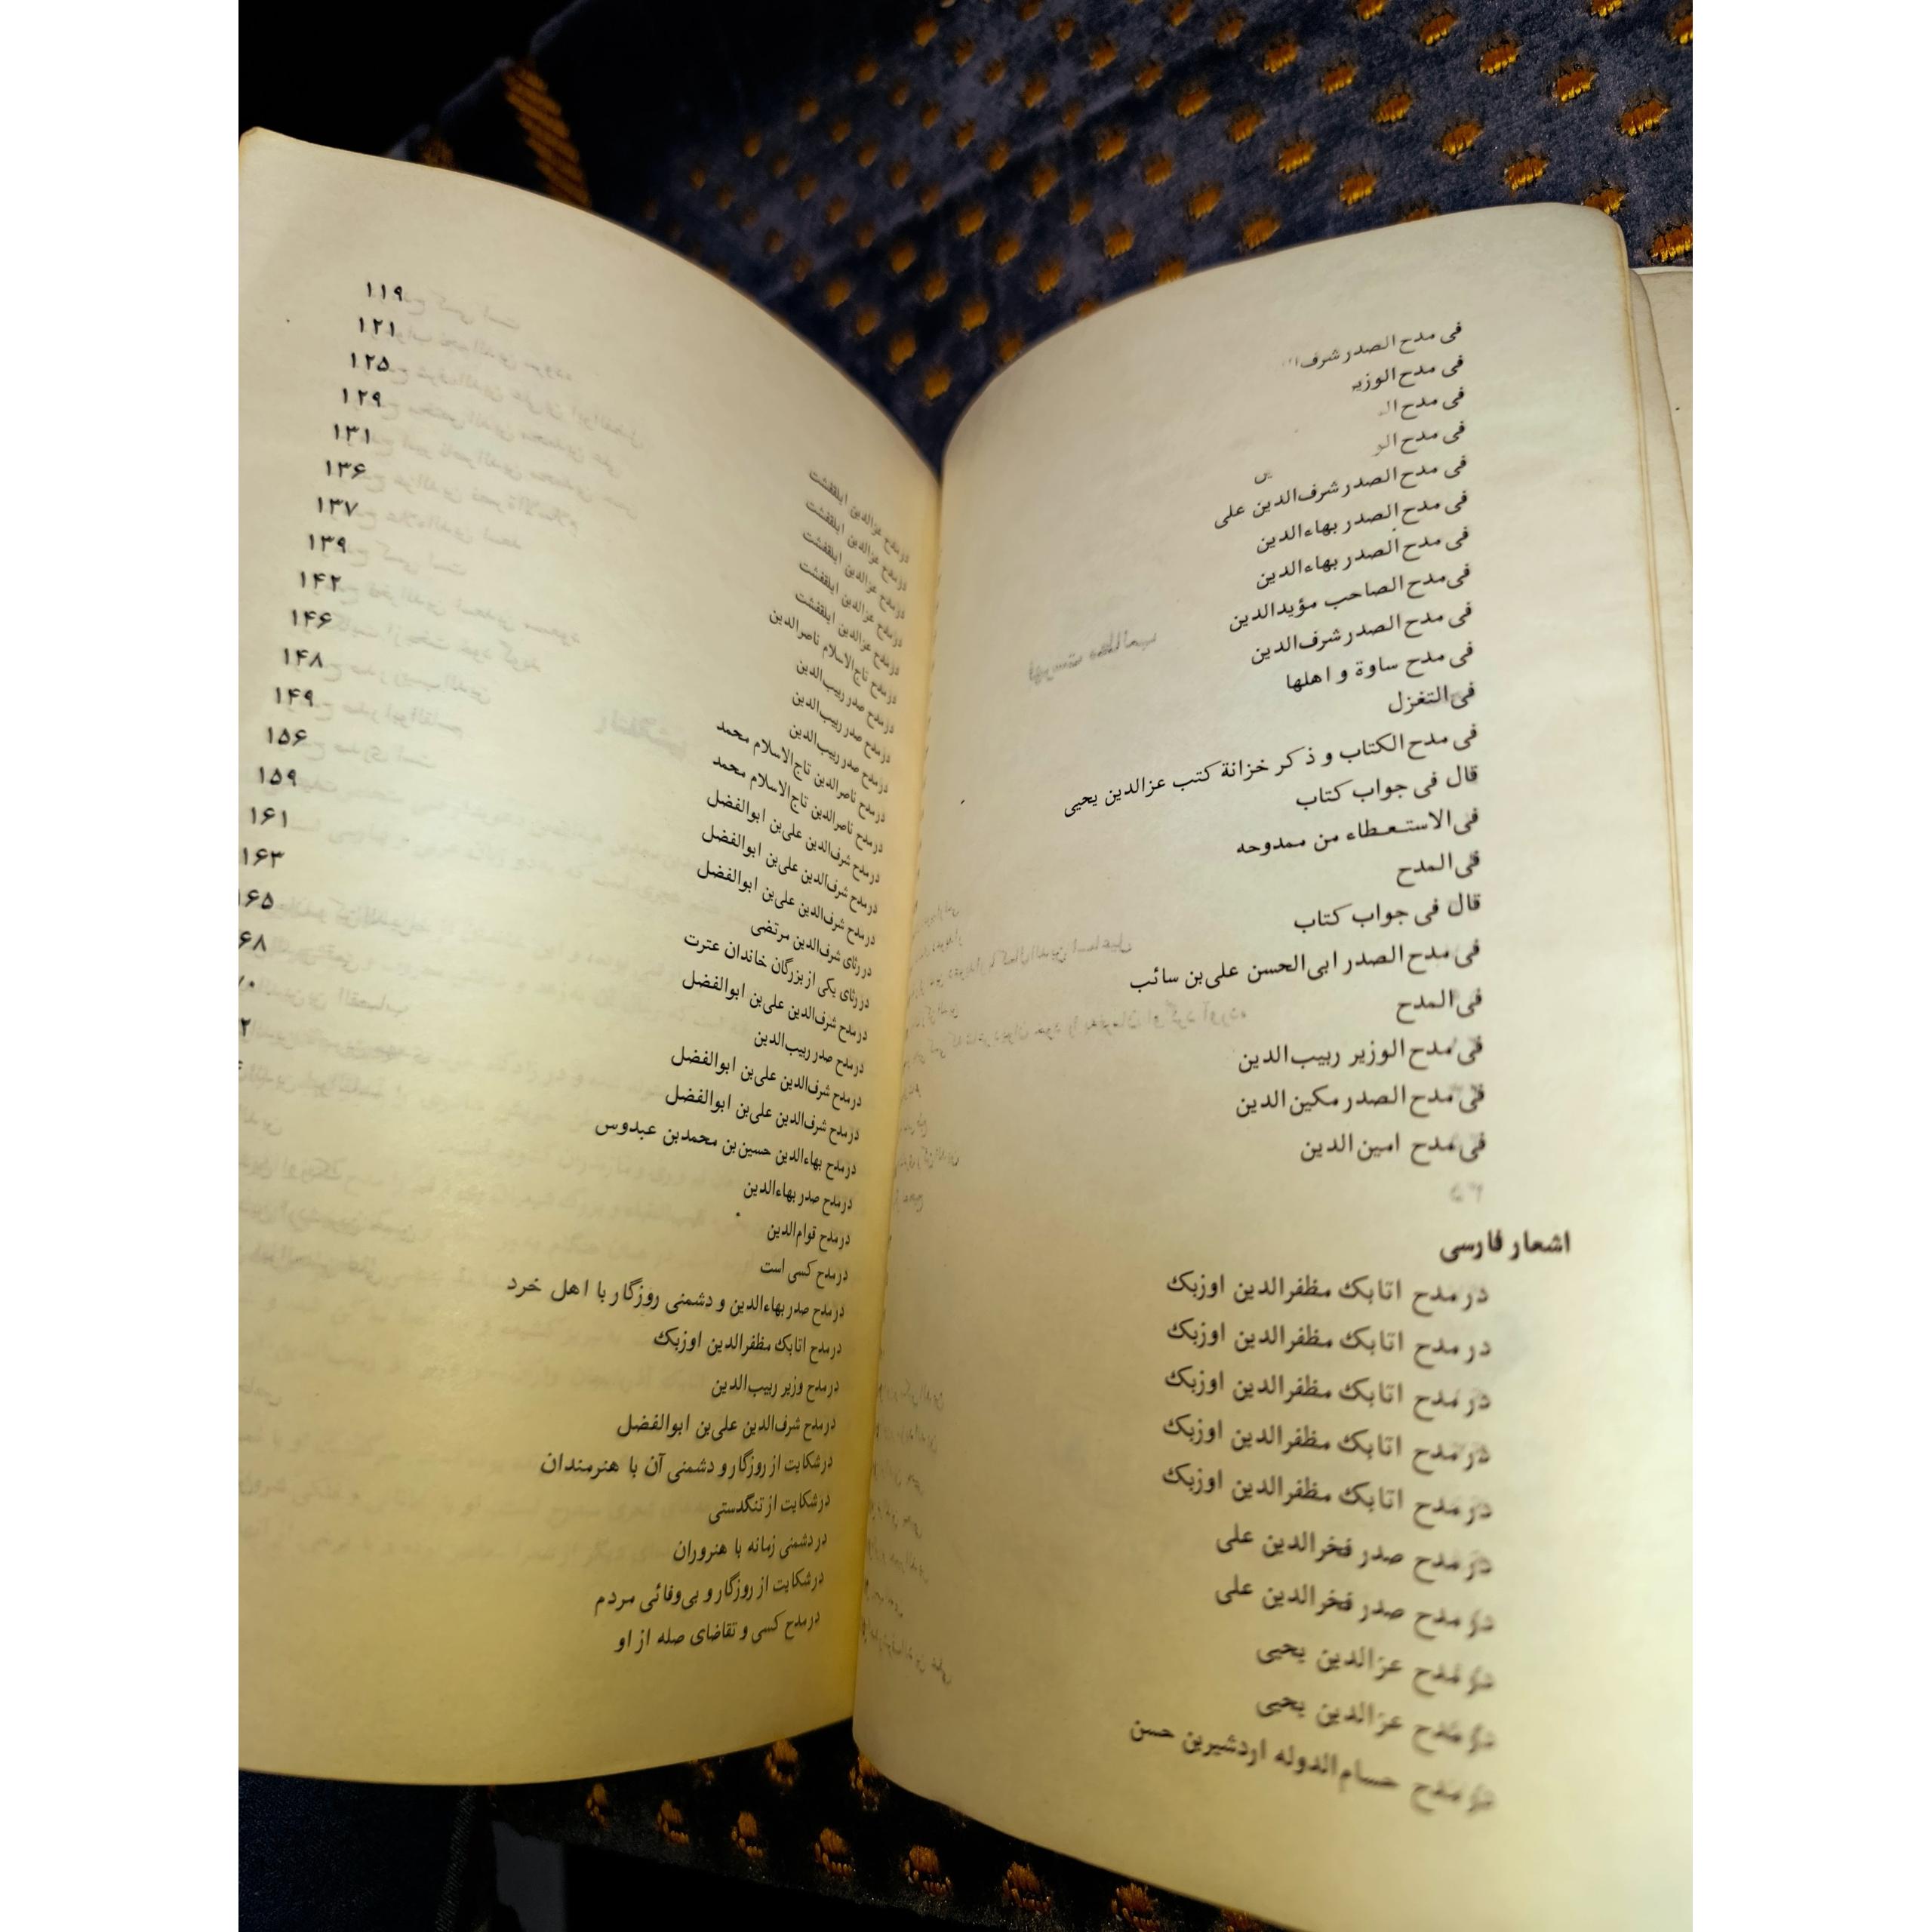 فی مدح الصدر شرف
فی مدح الوزیر
فی مدح
فی مدح
فی مدح الصدر شرف‌الدین علی
فی مدح الصدر بهاءالدین
فی مدح الصدر بهاءالدین
فی مدح الصاحب مؤیدالدین
فی مدح الصدر شرف‌الدین
فی مدح ساوة و اهلها
فی التغزل
فی مدح الکتاب و ذکر خزانة کتب عزالدین یحیی
قال فی جواب کتاب
فی الاستعطاء من ممدوحه
فی المدح
قال فی جواب کتاب
فی مدح الصدر ابی الحسن علی‌بن سائب
فی المدح
فی مدح الوزیر ربیب‌الدین
فی مدح الصدر مکین‌الدین
فی مدح امین‌الدین
اشعار فارسی
در مدح اتابک مظفرالدین اوزبک
در مدح اتابک مظفرالدین اوزبک
در مدح اتابک مظفرالدین اوزبک
در مدح اتابک مظفرالدین اوزبک
در مدح اتابک مظفرالدین اوزبک
در مدح صدر فخرالدین علی
در مدح صدر فخرالدین علی
در مدح عزالدین یحیی
در مدح عزالدین یحیی
در مدح حسام‌الدوله اردشیربن حسن
در مدح عزالدین ایلقفشت ۱۱۹
در مدح عزالدین ایلقفشت ۱۲۱
در مدح عزالدین ایلقفشت ۱۲۵
در مدح عزالدین ایلقفشت ۱۲۹
در مدح عزالدین ایلقفشت ۱۳۱
در مدح تاج‌الاسلام ناصرالدین ۱۳۶
در مدح صدر ربیب‌الدین ۱۳۷
در مدح صدر ربیب‌الدین ۱۳۹
در مدح صدر ربیب‌الدین ۱۴۲
در مدح ناصرالدین تاج‌الاسلام محمد ۱۴۶
در مدح ناصرالدین تاج‌الاسلام محمد ۱۴۸
در مدح شرف‌الدین علی‌بن ابوالفضل ۱۴۹
در مدح شرف‌الدین علی‌بن ابوالفضل ۱۵۶
در مدح شرف‌الدین علی‌بن ابوالفضل ۱۵۹
در رثای شرف‌الدین مرتضی ۱۶۱
در رثای یکی از بزرگان خاندان عترت ۱۶۳
در مدح شرف‌الدین علی‌بن ابوالفضل ۱۶۵
در مدح صدر ربیب‌الدین ۶۸
در مدح شرف‌الدین علی‌بن ابوالفضل
در مدح شرف‌الدین علی‌بن ابوالفضل ۲
در مدح بهاءالدین حسین‌بن محمدبن عبدوس
در مدح صدر بهاءالدین
در مدح قوام‌الدین
در مدح کسی است
در مدح صدر بهاءالدین و دشمنی روزگار با اهل خرد
در مدح اتابک مظفرالدین اوزبک
در مدح وزیر ربیب‌الدین
در مدح شرف‌الدین علی‌بن ابوالفضل
در شکایت از روزگار و دشمنی آن با هنرمندان
در شکایت از تنگدستی
در دشمنی زمانه با هنروران
در شکایت از روزگار و بی‌وفائی مردم
در مدح کسی و تقاضای صله از او